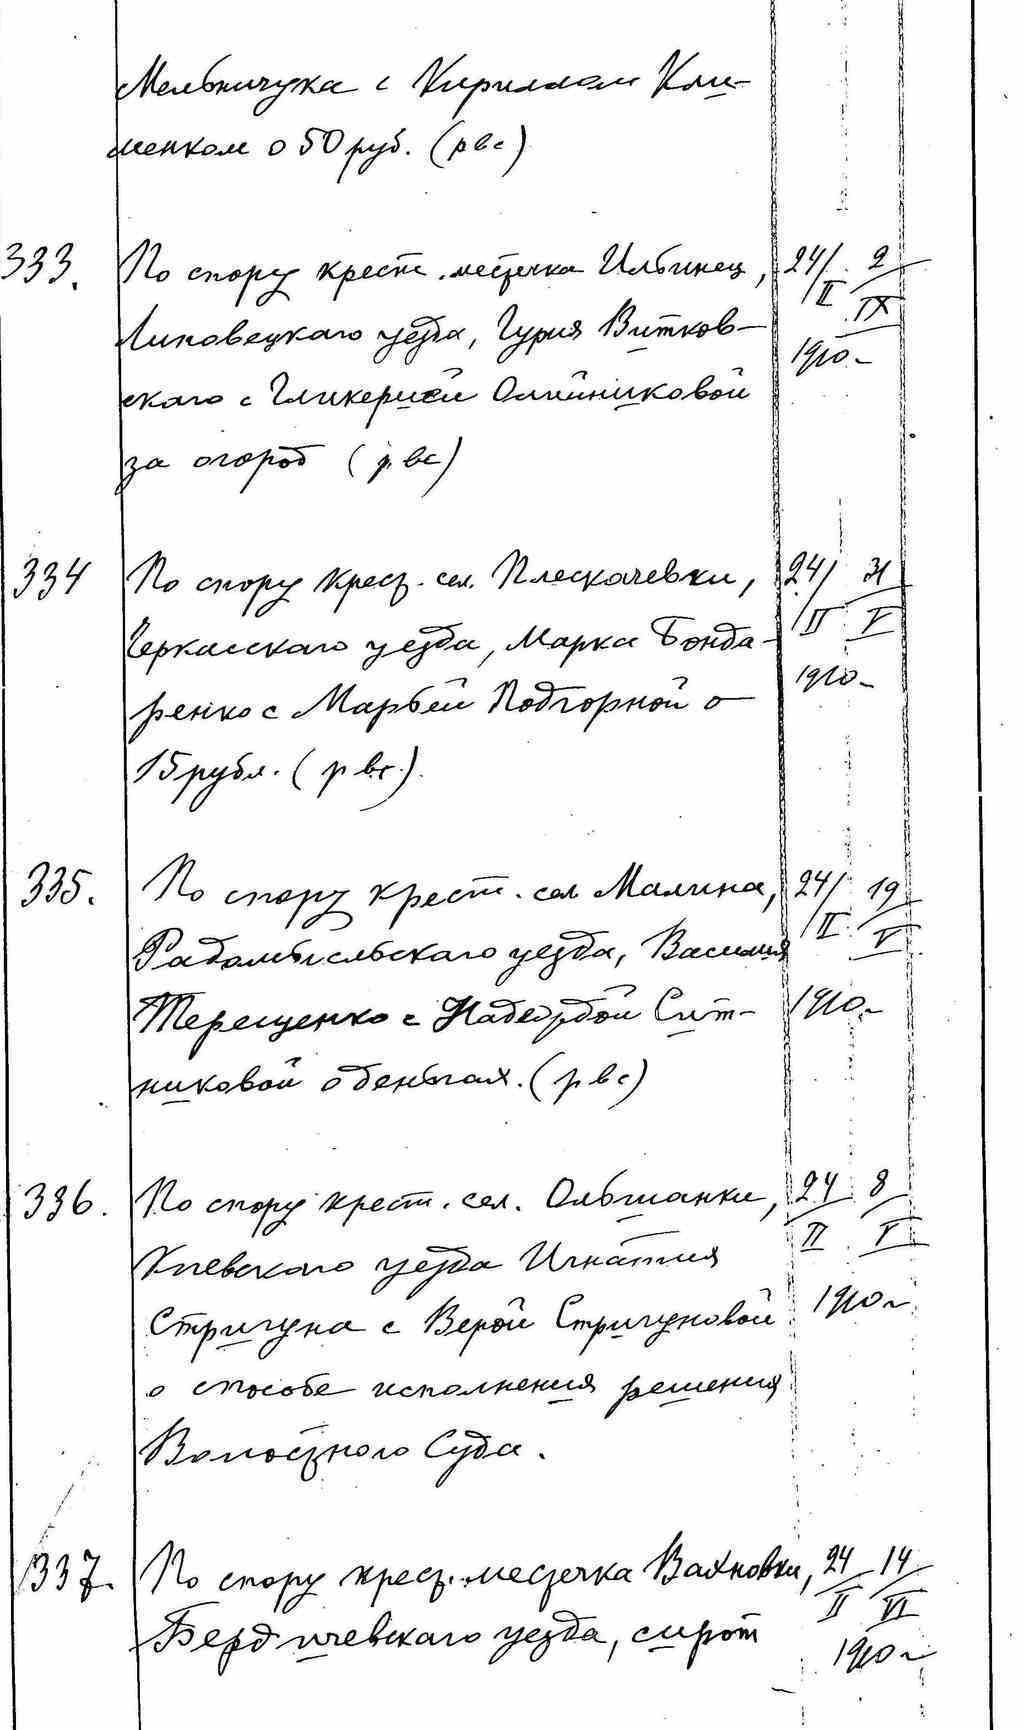 Мельничука с Кириллом Кли-
менком о 50 руб. (рвс)
333. По спору крест. местечка Ильинец, 24/II 2/IX
Липовецкаго уезда, Гурия Витков- 1910-
скаго с Гликерией Олийниковой
за огород (рвс)
334 По спору крест. сел. Плескачевки, 24/II 31/V
Черкасскаго уезда, Марка Бонда- 1910-
ренко с Марьей Подгорной о
15 рубл. (рвс.).
335. По спору крест. сел Малина, 24/II 19/V
Радомысльскаго уезда, Василия
Терещенко с Надеждой Сит- 1910-
никовой о деньгах. (рвс)
336. По спору крест. сел. Ольшанки, 24/II 8/V
Киевскаго уезда Игнатия
Стригуна с Верой Стригуновой 1910г
о способе исполнения решения
Волостного Суда.
337. По спору крест. местечка Вахновки, 24/II 14/VI
Бердичевскаго уезда, сирот 1910г